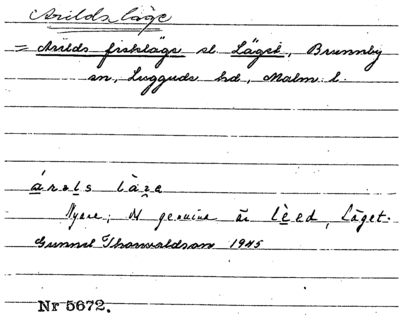 Arilds läge
= Arilds fiskläge el. Läget, Brunnby
sn, Luggude hd, Malm. l.
árəls làʒə
Nyare; det genuina är lèed, Läget.
Gunnel Thorwaldson 1945
Nr 5672.